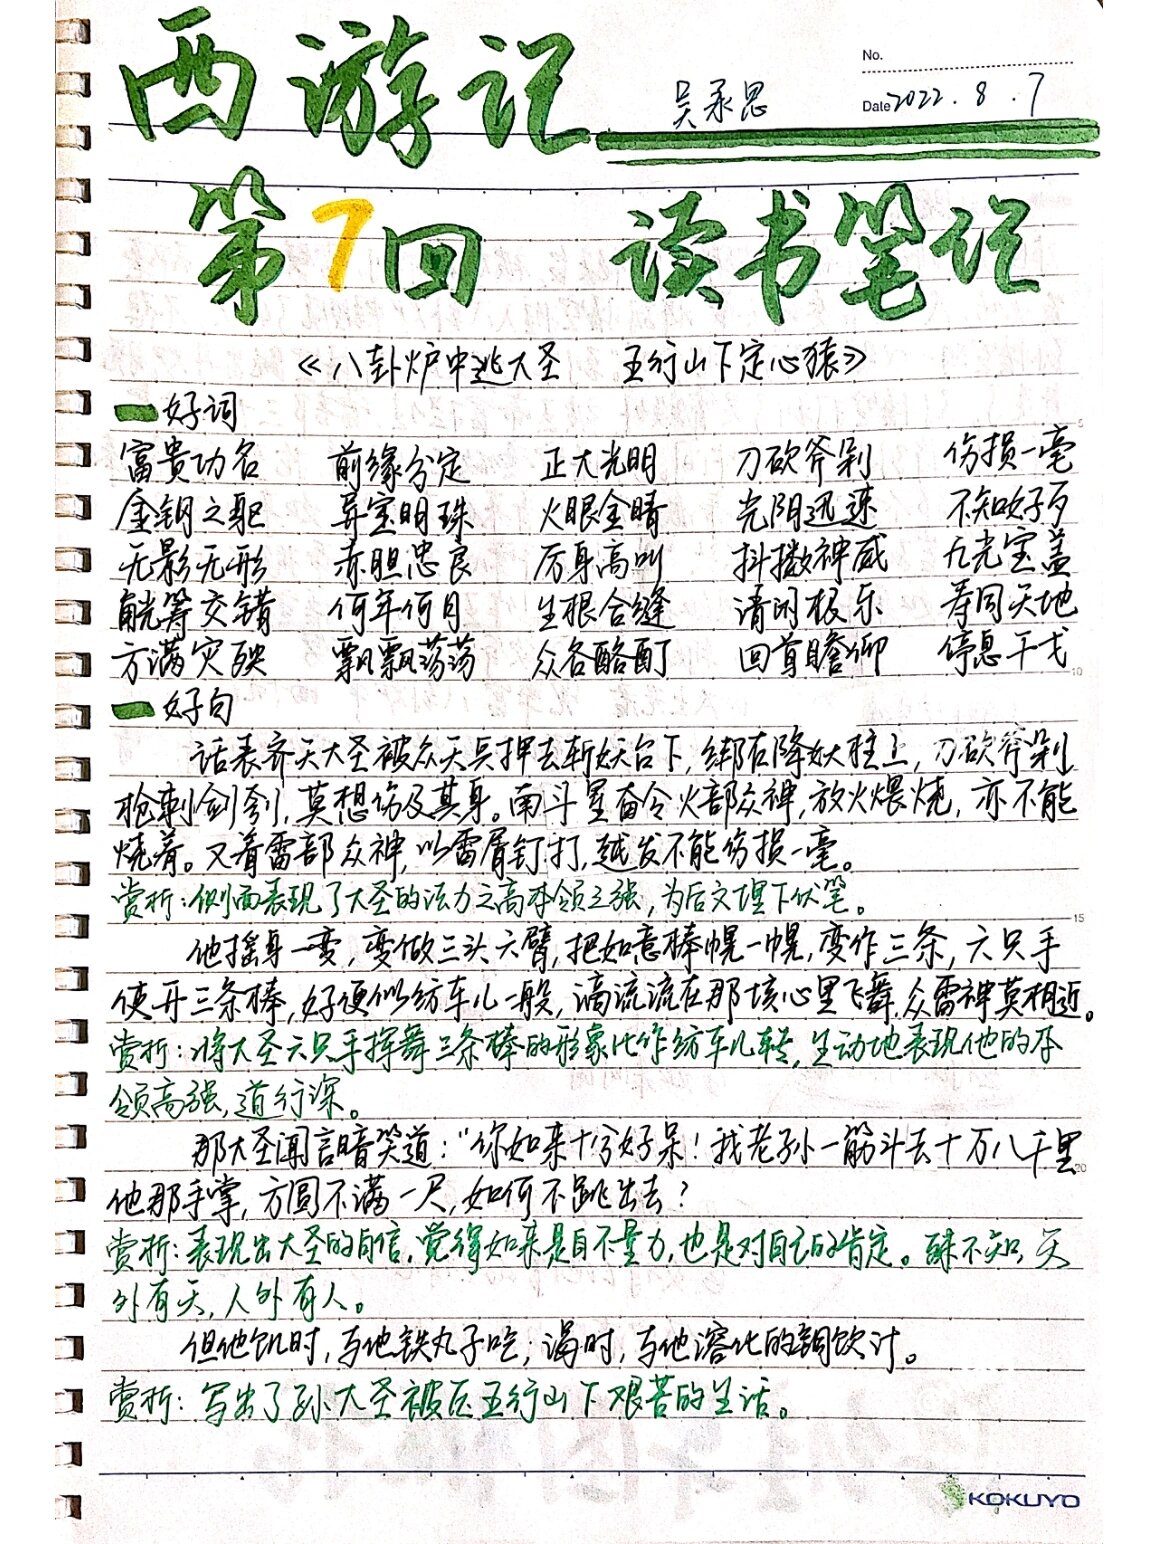 西游记
吴承恩
No.
Date 2022.8.7
第7回 读书笔记
《八卦炉中逃大圣 五行山下定心猿》
好词
富贵功名 前缘分定 正大光明 刀砍斧剁 伤损一毫
金钥之躯 异宝明珠 火眼金睛 光阴迅速 不知好歹
无影无形 赤胆忠良 厉身高叫 抖擞神威 九光宝盖
觥筹交错 何年何月 生根合缝 清闲极乐 寿同天地
方满灾殃 飘飘荡荡 众各酩酊 回首瞻仰 停息干戈
好句
话表齐天大圣被众天兵押去斩妖台下,绑在降妖柱上,刀砍斧剁
枪刺剑刳,莫想伤及其身。南斗星奋令火部众神,放火煨烧,亦不能
烧着。又着雷部众神,以雷屑钉打,越发不能伤损一毫。
赏析:侧面表现了大圣的法力之高本领之强,为后文埋下伏笔。
他摇身一变,变做三头六臂,把如意棒幌一幌,变作三条,六只手
使开三条棒,好便似纺车儿一般,滴流流在那垓心里飞舞,众雷神莫相近。
赏析:将大圣六只手挥舞三条棒的形象比作纺车儿转,生动地表现他的本
领高强,道行深。
那大圣闻言暗笑道:“你如来十分好呆!我老孙一筋斗去十万八千里
他那手掌,方圆不满一尺,如何不跳出去?
赏析:表现出大圣的自信,觉得如来是自不量力,也是对自己的肯定。殊不知,天
外有天,人外有人。
但他饥时,与他铁丸子吃;渴时,与他溶化的铜饮汁。
赏析:写出了孙大圣被压五行山下艰苦的生活。
5
10
15
20
KOKUYO